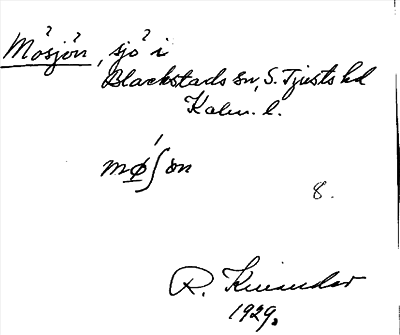 Mösjön, sjö i
Blackstads sn, S. Tjusts hd
Kalm. l.
mø´ʃøn
8.
R. Kinander
1929.